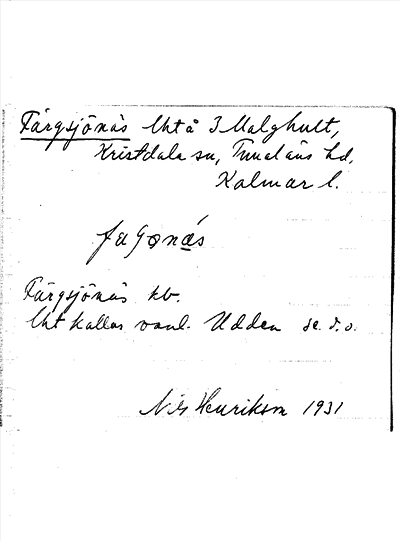 Färgsjönäs lht å 3 Malghult,
Kristdala sn, Tunaläns hd,
Kalmar l.
Färgsjönäs kb.
lht kallas vanl. Udden se d. o.
Nils Henrikson 1931